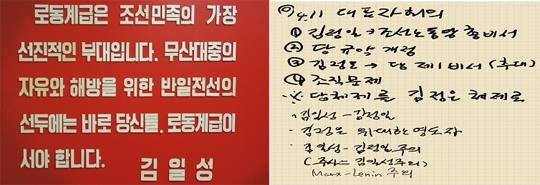 로동계급은 조선민족의 가장
선진적인 부대입니다. 무산대중의
자유와 해방을 위한 반일전선의
선두에는 바로 당신들, 로동계급이
서야 합니다.
김일성
4.11 대표자회의
① 김정일 → 조선노동당 총비서
② 당 규약 개정
③ 김정은 → 당 제1비서 (추대)
④ 조직문제
※ 당체제를 김정은 체제로
· 김일성 - 김정일
· 김정은 위대한 영도자
· 김일성 - 김정일 주의
(주사는 김일성주의)
Marx-Lenin 주의